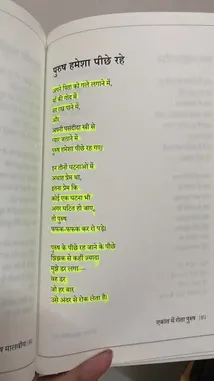 पुरुष हमेशा पीछे रहे
अपने पिता को गले लगाने में,
माँ की गोद में
सर रख पाने में,
और
अपनी पसंदीदा स्त्री से
प्यार जताने में
पुरुष हमेशा पीछे रह गए!
इन तीनों घटनाओं में
अथाह प्रेम था,
इतना प्रेम कि
कोई एक घटना भी
अगर घटित हो जाए,
तो पुरुष
फफक-फफक कर रो पड़े।
पुरुष के पीछे रह जाने के पीछे
झिझक से कहीं ज़्यादा
मुझे डर लगा—
वह डर
जो हर बार
उसे अंदर से रोक लेता है।
एकांत में रोता पुरुष
मालवीय